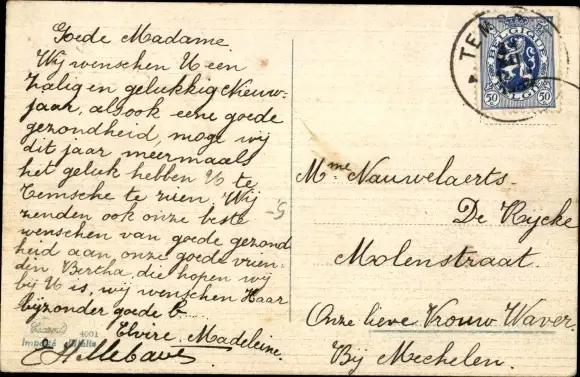 Goede Madame.
Wij wenschen U een
zalig en gelukkig Nieuw-
jaar, alsook eene goede
gezondheid, moge wij
dit jaar meermaals
het geluk hebben U te
Temsche te zien. Wij
zenden ook onze beste
wenschen van goede gezond
heid aan, onze goede vrien-
den Bertha, die hopen wij
bij U is, wij wenschen Haar
bijzonder goede
Elvire, Madeleine.
4001
Importé d'Italie
TEMS
BELGIQUE
50 50
BELGIË
Mme Nauwelaerts.
De Rijcke
Molenstraat.
Onze lieve Vrouw Waver.
Bij Mechelen.